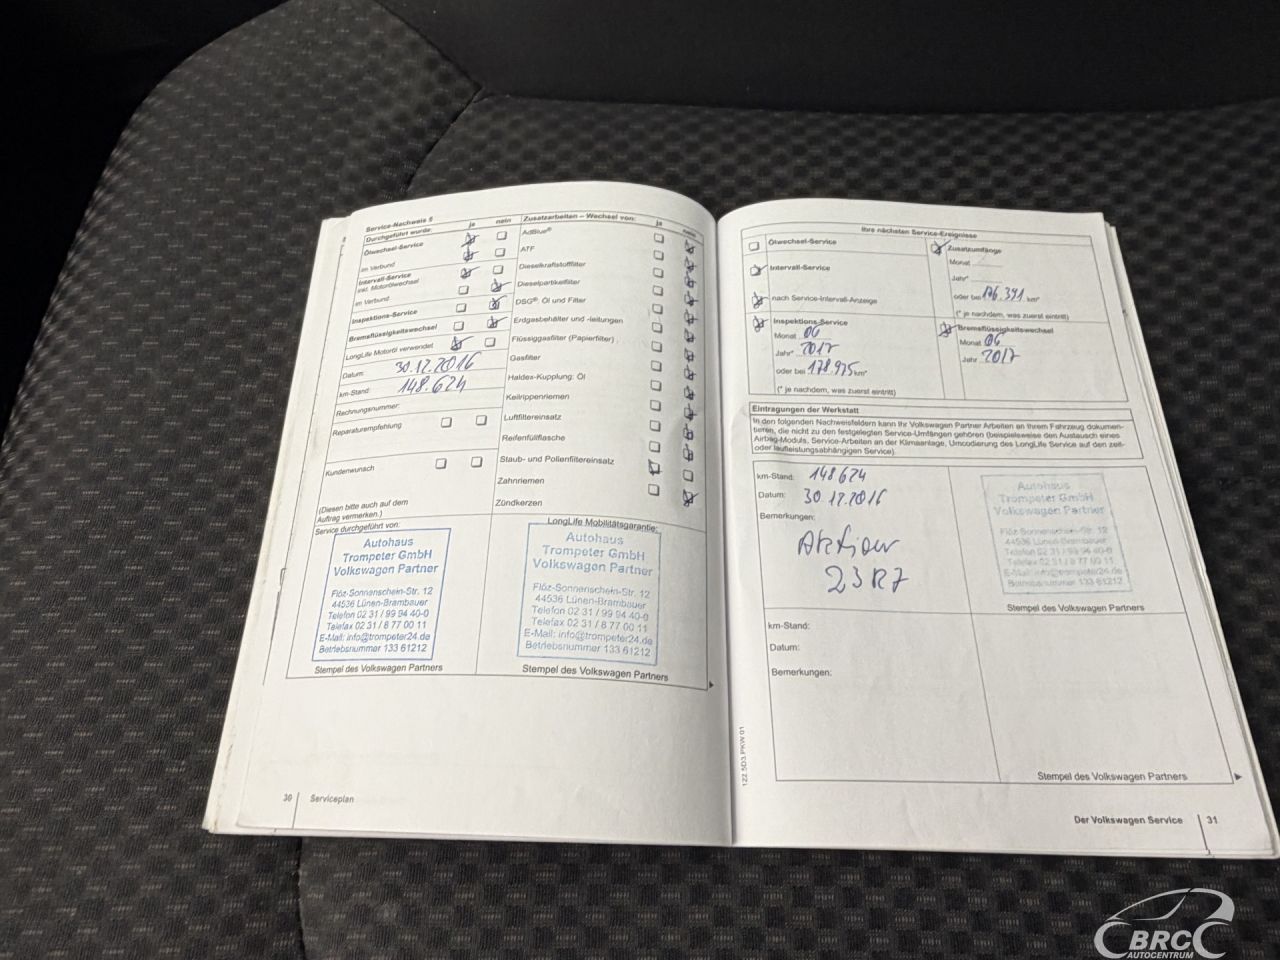 Service-Nachweis 6
Durchgeführt wurde: ja nein
Ölwechsel-Service
im Verbund
Intervall-Service
inkl. Motorölwechsel
im Verbund
Inspektions-Service
Bremsflüssigkeitswechsel
LongLife Motoröl verwendet
Datum: 30.12.2016
km-Stand: 148.624
Rechnungsnummer:
Reparaturempfehlung
Kundenwunsch
(Diesen bitte auch auf dem
Auftrag vermerken.)
Zusatzarbeiten – Wechsel von: ja nein
AdBlue®
ATF
Dieselkraftstofffilter
Dieselpartikelfilter
DSG®: Öl und Filter
Erdgasbehälter und -leitungen
Flüssiggasfilter (Papierfilter)
Gasfilter
Haldex-Kupplung: Öl
Keilrippenriemen
Luftfiltereinsatz
Reifenfüllflasche
Staub- und Pollenfiltereinsatz
Zahnriemen
Zündkerzen
Service durchgeführt von:
Autohaus
Trompeter GmbH
Volkswagen Partner
Flöz-Sonnenschein-Str. 12
44536 Lünen-Brambauer
Telefon 02 31 / 99 94 40-0
Telefax 02 31 / 8 77 00 11
E-Mail: info@trompeter24.de
Betriebsnummer 133 61212
Stempel des Volkswagen Partners
LongLife Mobilitätsgarantie:
Autohaus
Trompeter GmbH
Volkswagen Partner
Flöz-Sonnenschein-Str. 12
44536 Lünen-Brambauer
Telefon 02 31 / 99 94 40-0
Telefax 02 31 / 8 77 00 11
E-Mail: info@trompeter24.de
Betriebsnummer 133 61212
Stempel des Volkswagen Partners
30 Serviceplan
Ihre nächsten Service-Ereignisse
Ölwechsel-Service
Intervall-Service
nach Service-Intervall-Anzeige
Zusatzumfänge
Monat
Jahr*
oder bei 176.391 km*
(* je nachdem, was zuerst eintritt)
Inspektions-Service
Monat 06
Jahr* 2017
oder bei 178.975 km*
(* je nachdem, was zuerst eintritt)
Bremsflüssigkeitswechsel
Monat 06
Jahr 2017
Eintragungen der Werkstatt
In den folgenden Nachweisfeldern kann Ihr Volkswagen Partner Arbeiten an Ihrem Fahrzeug dokumen-
tieren, die nicht zu den festgelegten Service-Umfängen gehören (beispielsweise den Austausch eines
Airbag-Moduls, Service-Arbeiten an der Klimaanlage, Umcodierung des LongLife Service auf den zeit-
oder laufleistungsabhängigen Service).
km-Stand: 148624
Datum: 30.12.2016
Bemerkungen:
Aktion
23R7
Autohaus
Trompeter GmbH
Volkswagen Partner
Flöz-Sonnenschein-Str. 12
44536 Lünen-Brambauer
Telefon 02 31 / 99 94 40-0
Telefax 02 31 / 8 77 00 11
E-Mail: info@trompeter24.de
Betriebsnummer 133 61212
Stempel des Volkswagen Partners
km-Stand:
Datum:
Bemerkungen:
Stempel des Volkswagen Partners
122.5D3.PKW.01
Der Volkswagen Service 31
BRC
AUTOCENTRUM